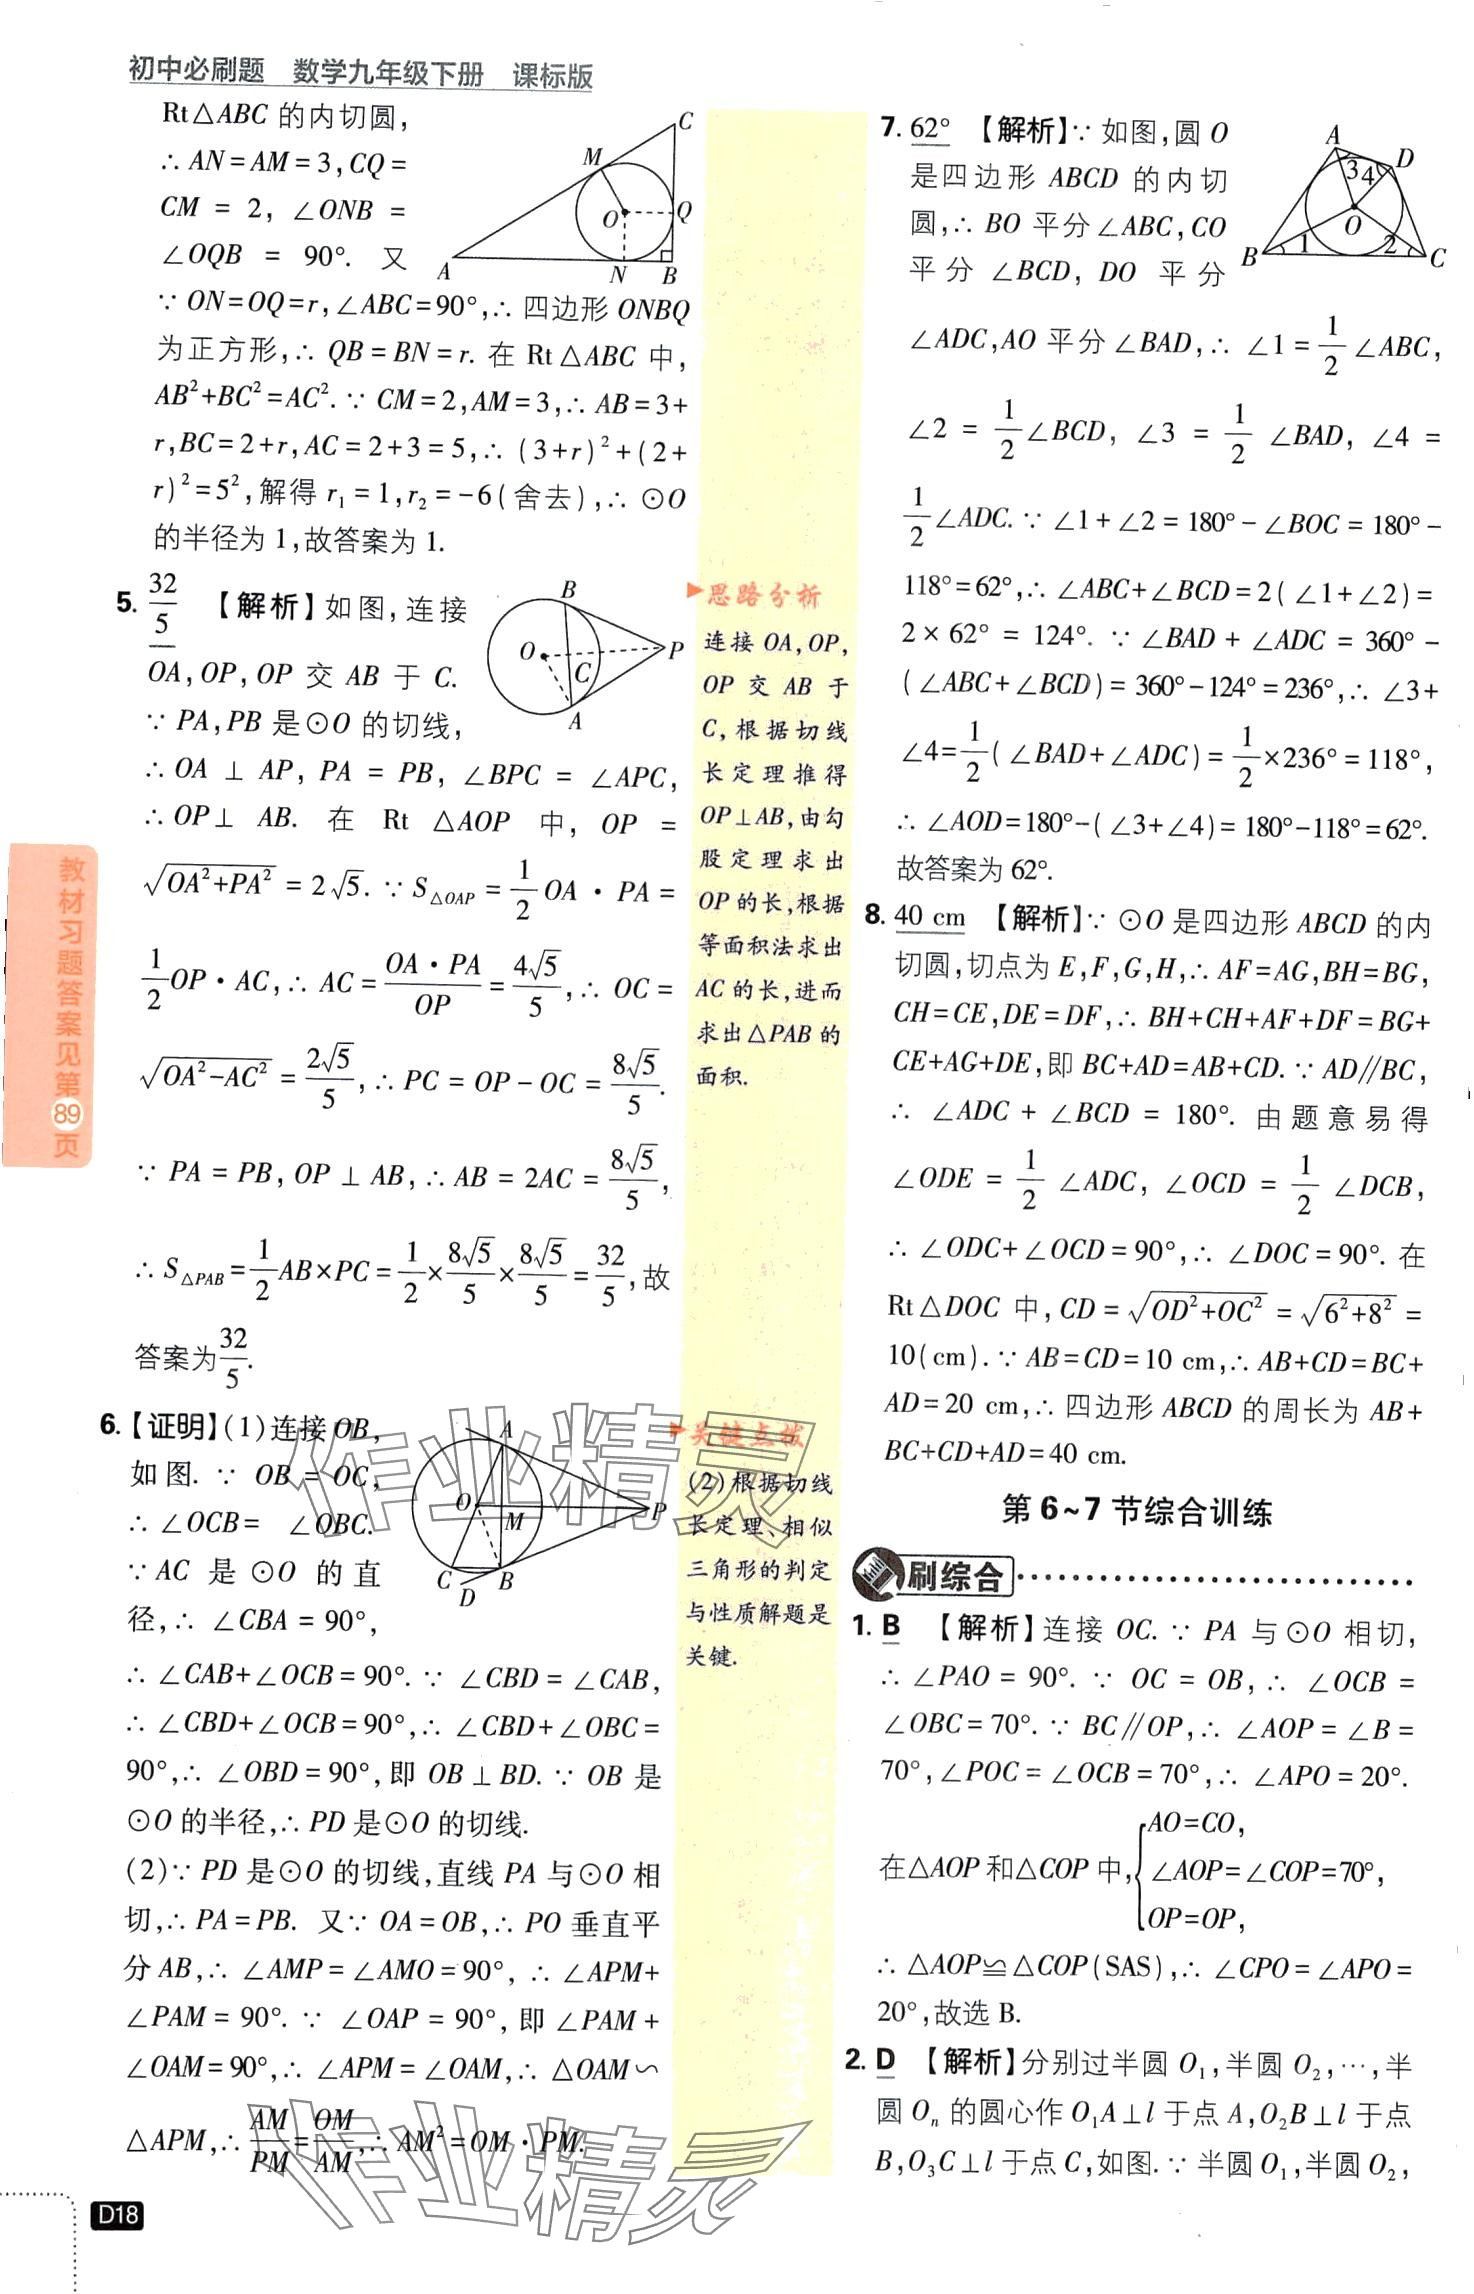 初中必刷题 数学九年级下册 课标版
Rt△ABC 的内切圆,
∴ AN=AM=3,CQ=
CM = 2, ∠ONB =
∠OQB = 90°. 又
∵ ON=OQ=r,∠ABC=90°,∴ 四边形 ONBQ
为正方形,∴ QB=BN=r. 在 Rt△ABC 中,
AB²+BC²=AC². ∵ CM=2,AM=3,∴ AB=3+
r,BC=2+r,AC=2+3=5,∴ (3+r)²+(2+
r)²=5²,解得 r₁=1,r₂=-6(舍去),∴ ⊙O
的半径为 1,故答案为 1.
C
M
O
Q
A
N
B
5. 32/5 【解析】如图,连接
OA,OP,OP 交 AB 于 C.
∵ PA,PB 是⊙O 的切线,
∴ OA ⊥ AP, PA = PB, ∠BPC = ∠APC,
∴ OP⊥ AB. 在 Rt △AOP 中, OP =
√(OA²+PA²) = 2√5. ∵ S△OAP = 1/2 OA · PA =
1/2 OP · AC,∴ AC = (OA · PA)/OP = 4√5/5,∴ OC =
√(OA²-AC²) = 2√5/5,∴ PC = OP - OC = 8√5/5.
∵ PA = PB, OP ⊥ AB,∴ AB = 2AC = 8√5/5,
∴ S△PAB = 1/2 AB×PC = 1/2 × 8√5/5 × 8√5/5 = 32/5,故
答案为 32/5.
B
O
P
C
A
6.【证明】(1)连接 OB,
如图. ∵ OB = OC,
∴ ∠OCB= ∠OBC.
∵ AC 是 ⊙O 的直
径,∴ ∠CBA = 90°,
∴ ∠CAB+∠OCB=90°. ∵ ∠CBD=∠CAB,
∴ ∠CBD+∠OCB=90°,∴ ∠CBD+∠OBC=
90°,∴ ∠OBD=90°,即 OB⊥BD. ∵ OB 是
⊙O 的半径,∴ PD 是⊙O 的切线.
(2)∵ PD 是⊙O 的切线,直线 PA 与⊙O 相
切,∴ PA=PB. 又∵ OA=OB,∴ PO 垂直平
分 AB,∴ ∠AMP=∠AMO=90°, ∴ ∠APM+
∠PAM = 90°. ∵ ∠OAP = 90°, 即 ∠PAM +
∠OAM=90°,∴ ∠APM=∠OAM,∴ △OAM∽
△APM,∴ AM/PM = OM/AM,∴ AM²=OM · PM.
A
O
M
P
C
D
B
教材习题答案见第89页
D18
思路分析
连接 OA,OP,
OP 交 AB 于
C,根据切线
长定理推得
OP⊥AB,由勾
股定理求出
OP 的长,根据
等面积法求出
AC 的长,进而
求出△PAB 的
面积.
关键点拨
(2)根据切线
长定理、相似
三角形的判定
与性质解题是
关键.
7. 62° 【解析】∵ 如图,圆 O
是四边形 ABCD 的内切
圆,∴ BO 平分∠ABC,CO
平分 ∠BCD, DO 平分
∠ADC,AO 平分∠BAD,∴ ∠1 = 1/2 ∠ABC,
∠2 = 1/2 ∠BCD, ∠3 = 1/2 ∠BAD, ∠4 =
1/2 ∠ADC. ∵ ∠1+∠2=180°-∠BOC=180°-
118°=62°,∴ ∠ABC+∠BCD=2(∠1+∠2)=
2×62° = 124°. ∵ ∠BAD + ∠ADC = 360°-
(∠ABC+∠BCD)=360°-124°=236°,∴ ∠3+
∠4= 1/2 (∠BAD+∠ADC)= 1/2 ×236°=118°,
∴ ∠AOD=180°-(∠3+∠4)=180°-118°=62°.
故答案为 62°.
A
D
3 4
O
B
1
2
C
8. 40 cm 【解析】∵ ⊙O 是四边形 ABCD 的内
切圆,切点为 E,F,G,H,∴ AF=AG,BH=BG,
CH=CE,DE=DF,∴ BH+CH+AF+DF=BG+
CE+AG+DE,即 BC+AD=AB+CD. ∵ AD∥BC,
∴ ∠ADC + ∠BCD = 180°. 由题意易得
∠ODE = 1/2 ∠ADC, ∠OCD = 1/2 ∠DCB,
∴ ∠ODC+∠OCD=90°,∴ ∠DOC=90°. 在
Rt△DOC 中,CD=√(OD²+OC²) =√(6²+8²) =
10(cm). ∵ AB=CD=10 cm,∴ AB+CD=BC+
AD=20 cm,∴ 四边形 ABCD 的周长为 AB+
BC+CD+AD=40 cm.
第 6~7 节综合训练
刷综合
1. B 【解析】连接 OC. ∵ PA 与⊙O 相切,
∴ ∠PAO = 90°. ∵ OC = OB,∴ ∠OCB =
∠OBC=70°. ∵ BC∥OP,∴ ∠AOP=∠B=
70°,∠POC=∠OCB=70°,∴ ∠APO=20°.
在△AOP 和△COP 中, { AO=CO,
∠AOP=∠COP=70°,
OP=OP,
∴ △AOP≌△COP(SAS),∴ ∠CPO=∠APO=
20°,故选 B.
2. D 【解析】分别过半圆 O₁,半圆 O₂,…,半
圆 Oₙ 的圆心作 O₁A⊥l 于点 A,O₂B⊥l 于点
B,O₃C⊥l 于点 C,如图. ∵ 半圆 O₁,半圆 O₂,
作业精灵
作业精灵